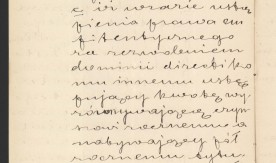 c) w razie ustą
pienia prawa em
fitentycznego
za zezwoleniem
dominii directi ko
mu innemu ustę
pujący kwotę wy
równywającą czyn
szowi rocznemu a
nabywający pół
rocznemu tytu